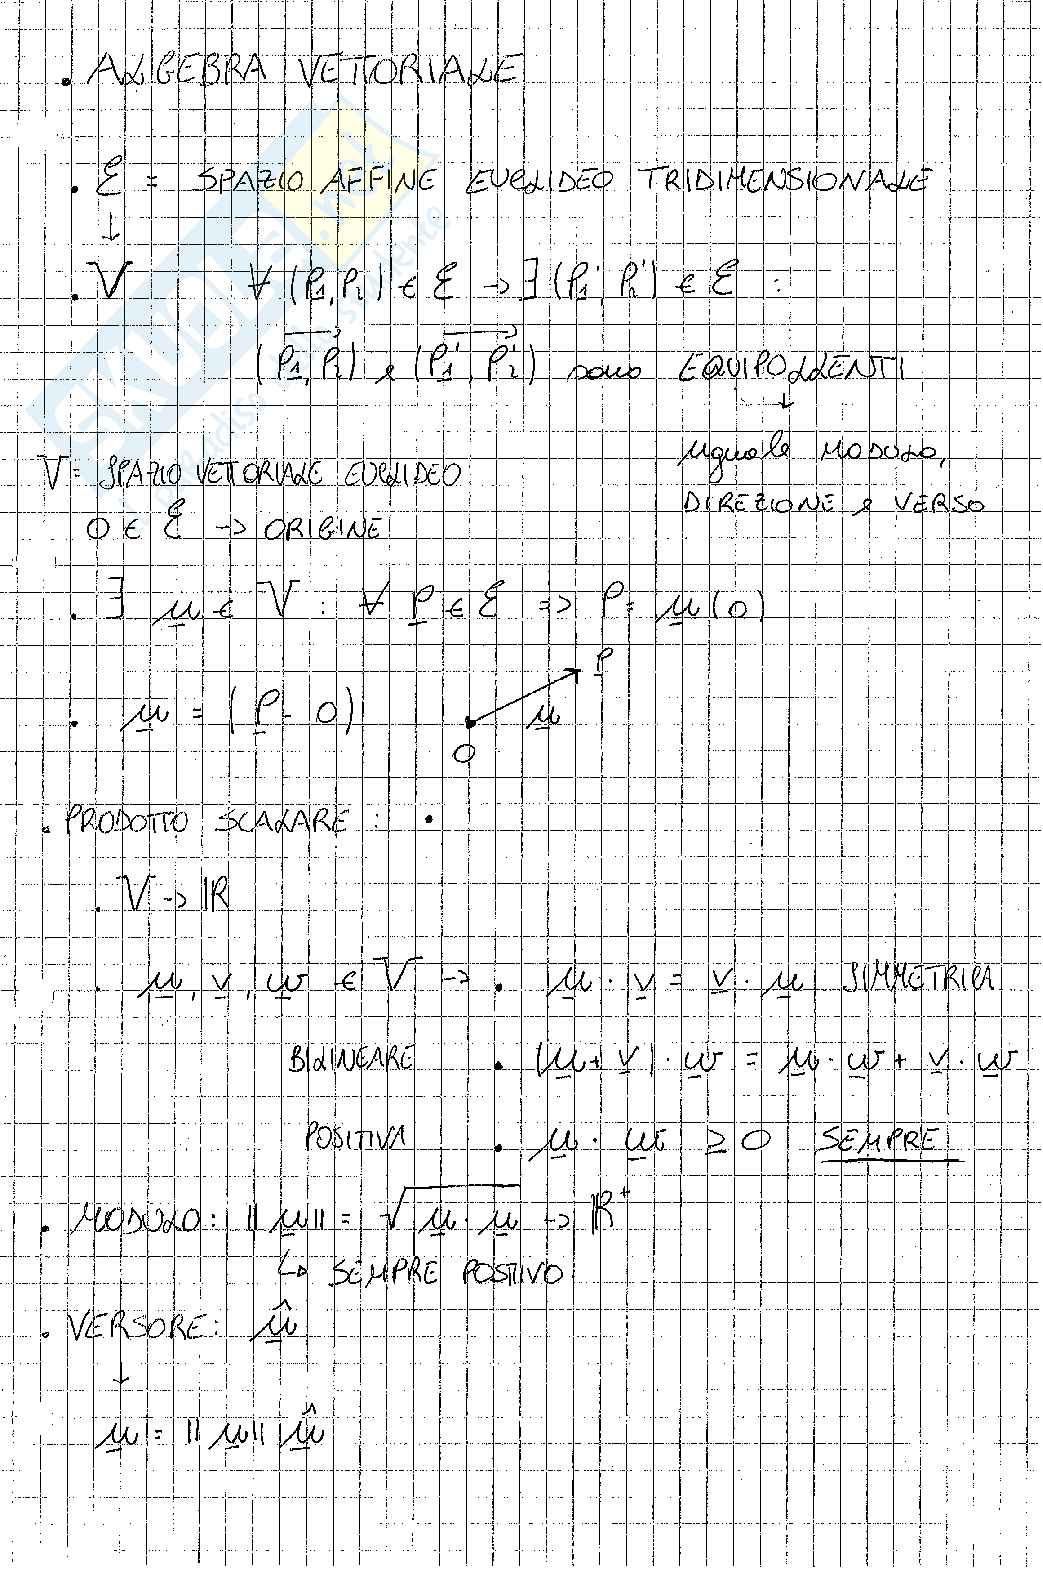 . ALGEBRA VETTORIALE
. ℰ = SPAZIO AFFINE EUCLIDEO TRIDIMENSIONALE
↓
. V ∀ (P₁, P₂) ∈ ℰ → ∃ (P₁', P₂') ∈ ℰ :
(P₁, P₂) e (P₁', P₂') sono EQUIPOLLENTI
↓
uguale MODULO,
DIREZIONE e VERSO
V = SPAZIO VETTORIALE EUCLIDEO
O ∈ ℰ → ORIGINE
. ∃ u ∈ V : ∀ P ∈ ℰ => P = u(O)
. u = (P - O)
P
u
O
. PRODOTTO SCALARE : •
. V → ℝ
. u, v, w ∈ V → . u · v = v · u SIMMETRICA
BILINEARE . (u + v) · w = u · w + v · w
POSITIVA . u · u ≥ 0 SEMPRE
. MODULO: ||u|| = √u · u → ℝ⁺
↳ SEMPRE POSTIVO
. VERSORE: û
↓
u = ||u|| û